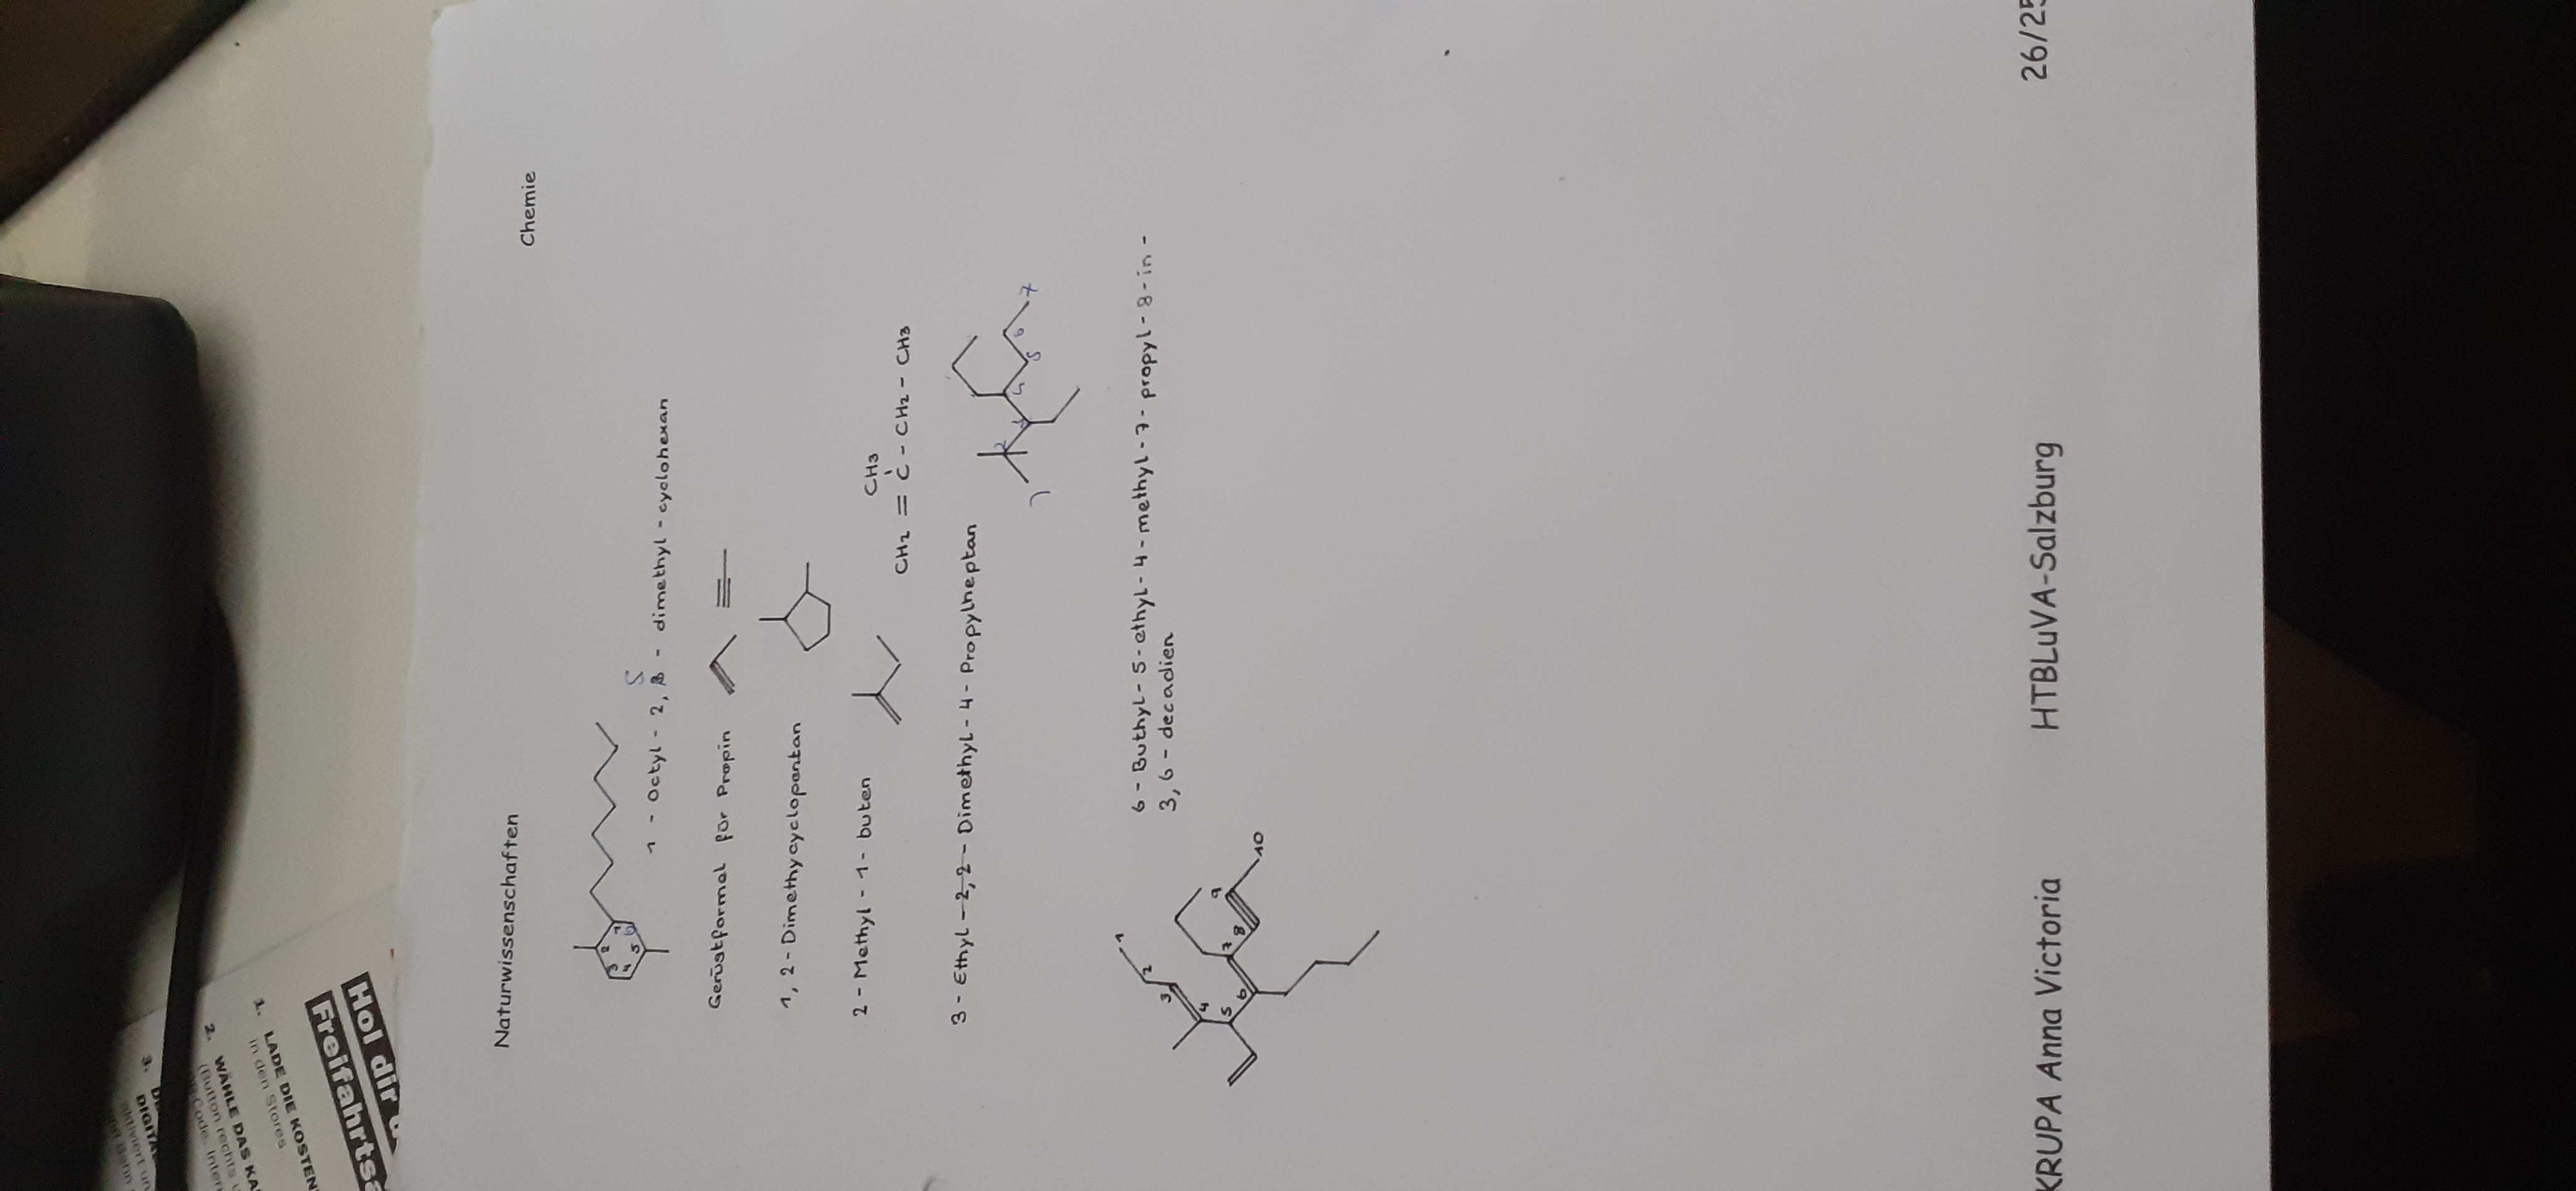 Hol dir d
Freifahrtsa
1. LADE DIE KOSTEN
in den Stores
2. WÄHLE DAS KA
(Button rechts u
Code, Intern
3.
DIGITA
aktiviert un
und Bahn
Naturwissenschaften
Chemie
2
3 1
4 6
5
5
1 - Octyl - 2, 3 - dimethyl - cyclohexan
Gerüstformel für Propin
1, 2 - Dimethycyclopentan
2 - Methyl - 1 - buten
CH3
CH2 = C - CH2 - CH3
3 - Ethyl - 2,2 - Dimethyl - 4 - Propylheptan
1 2 3 4 5 6 7
6 - Buthyl - 5 - ethyl - 4 - methyl - 7 - propyl - 8 - in -
3, 6 - decadien
1
2
3
4
5
6 7 8 9
10
KRUPA Anna Victoria
HTBLuVA-Salzburg
26/25